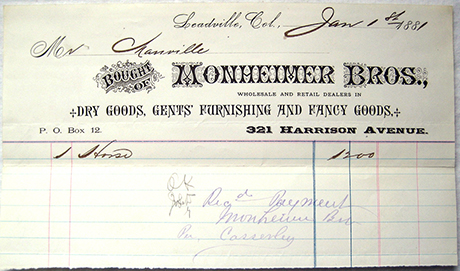 Leadville, Col., Jan 1 st 1881
Mr Manville
BOUGHT OF MONHEIMER BROS.,
WHOLESALE AND RETAIL DEALERS IN
DRY GOODS, GENTS' FURNISHING AND FANCY GOODS,
P. O. Box 12. 321 HARRISON AVENUE.
1 Horse 1200
OK
Rec'd Payment
Monheimer Bro.
Per Casserley